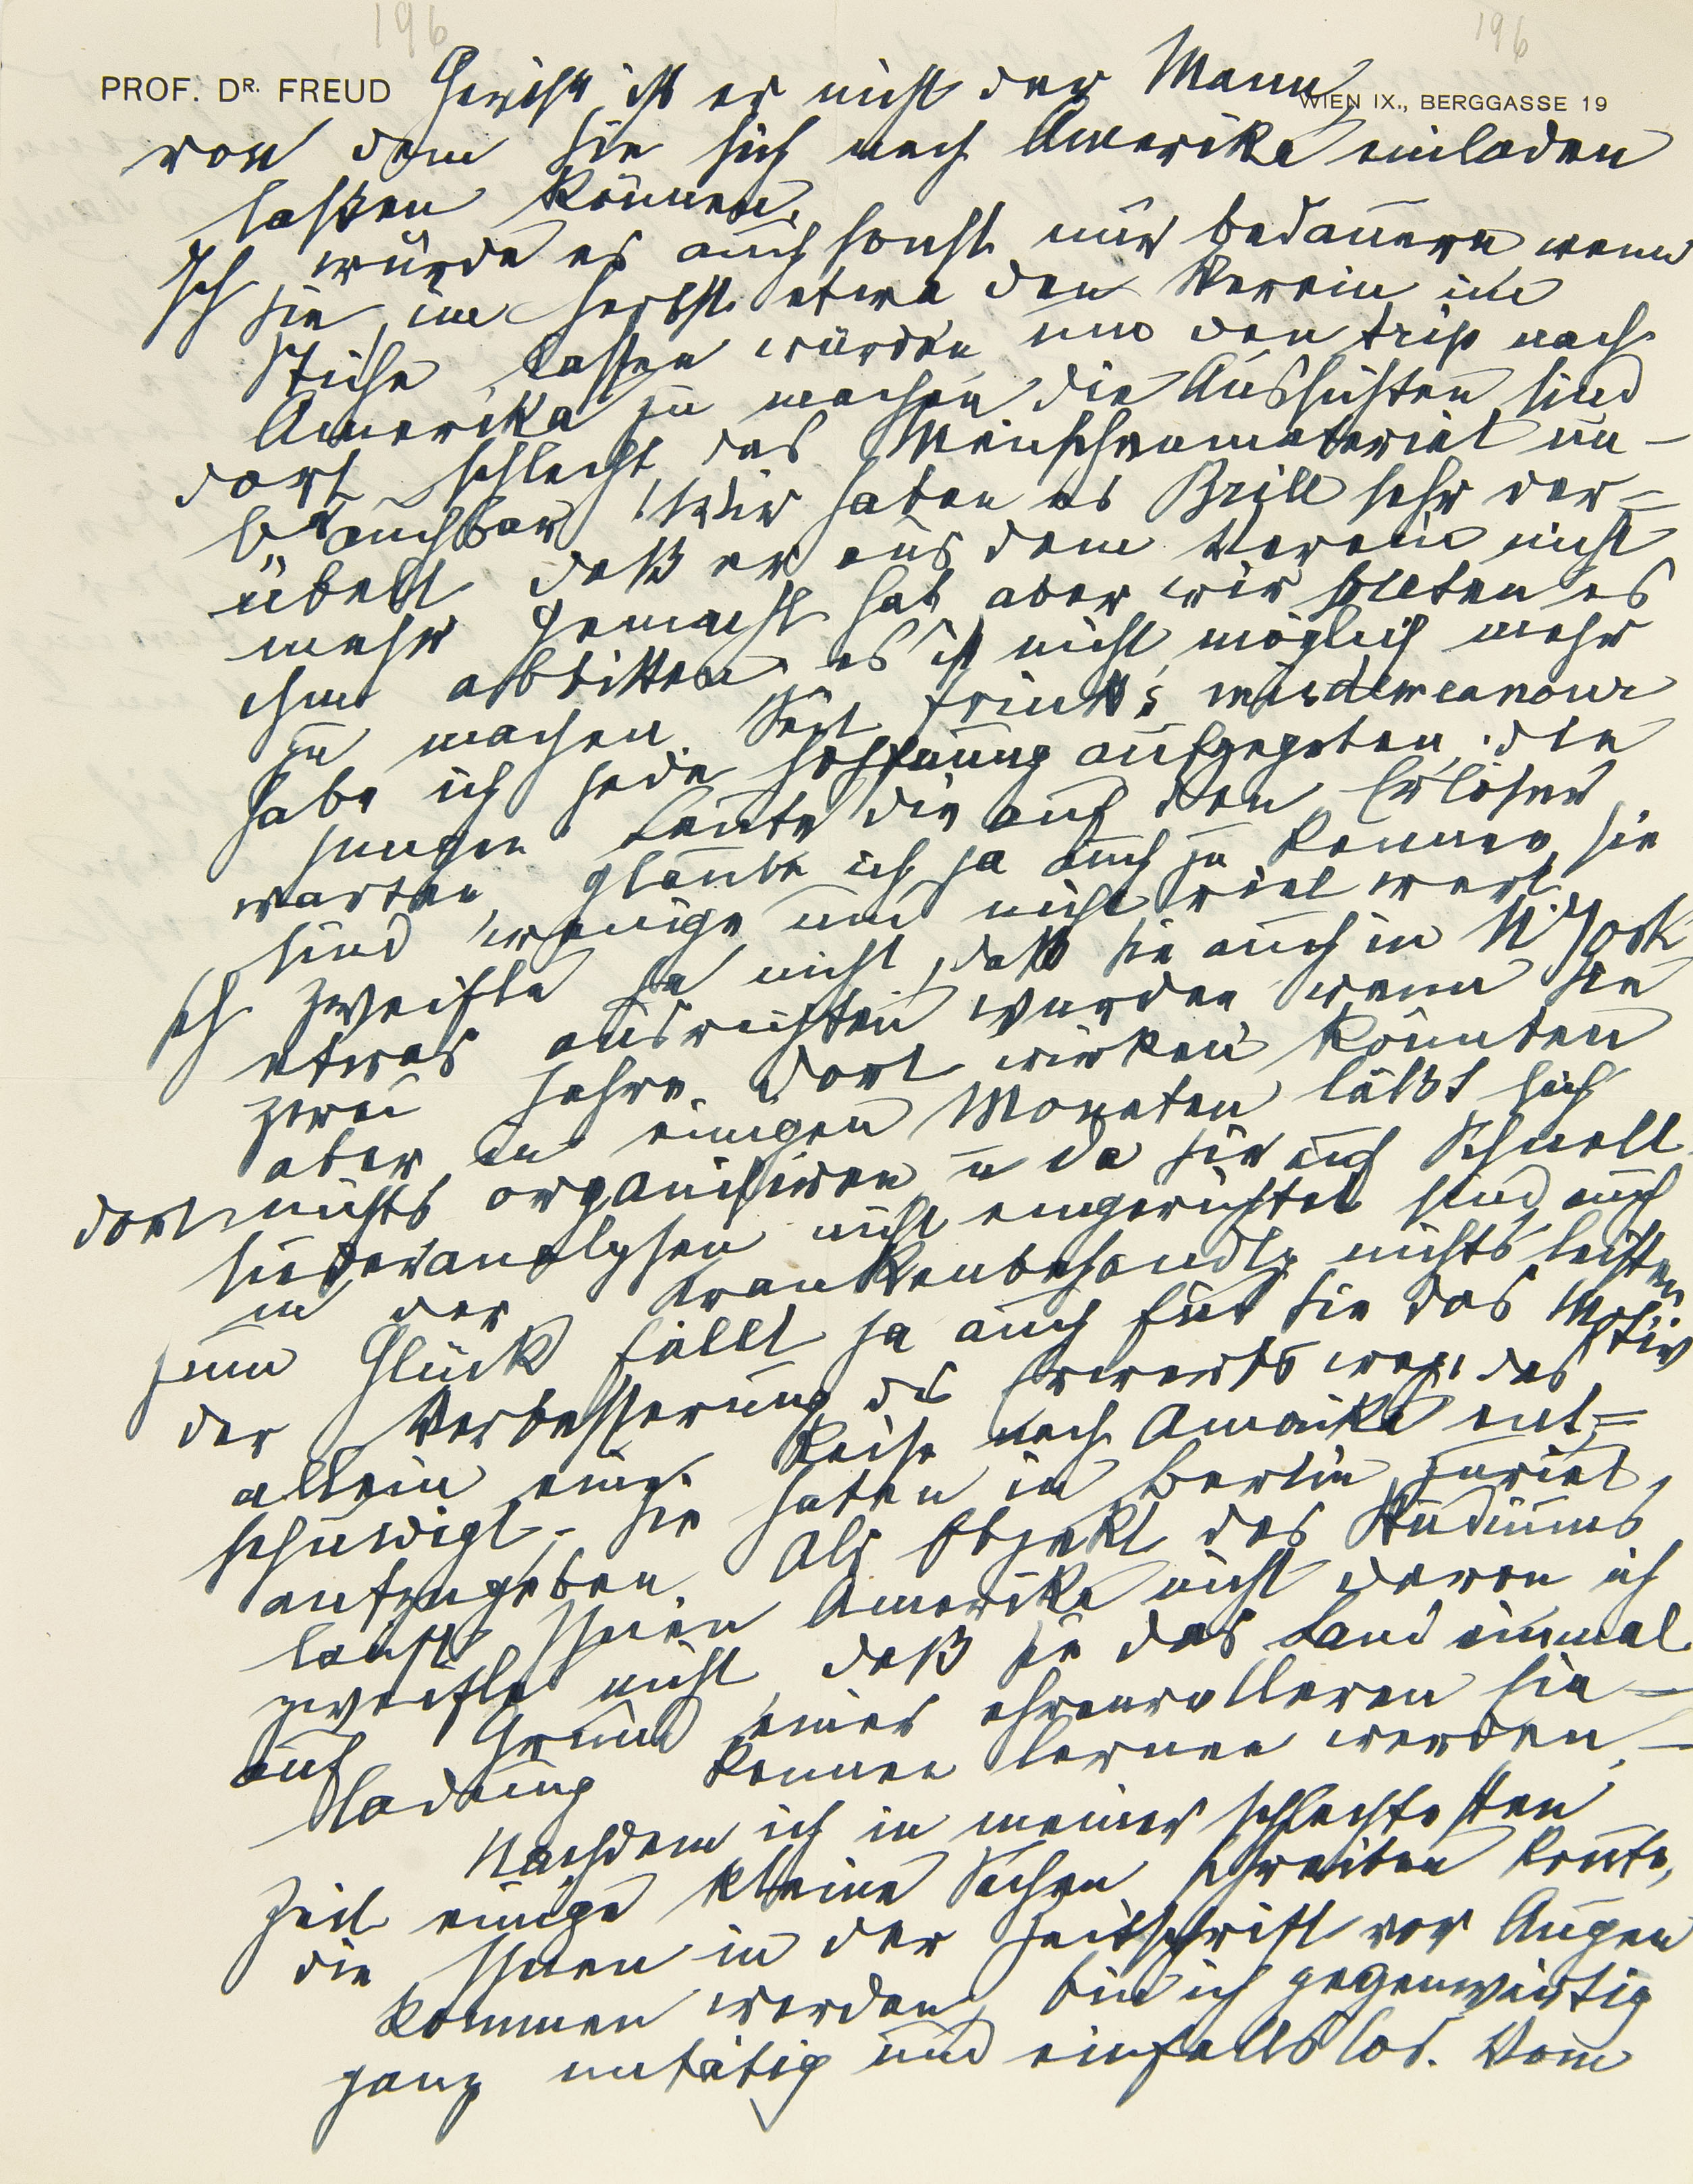 196
196
PROF. DR. FREUD
WIEN IX., BERGGASSE 19
Gewiss ist er nicht der Mann,
von dem Sie sich nach Amerika einladen
lassen können.
Ich würde es auch sonst nur bedauern wenn
Sie im Herbst etwa den Verein im
Stiche lassen würden um den trip nach
Amerika zu machen die Aussichten sind
dort schlecht, das Menschenmaterial un-
brauchbar. Wir haben es Brill sehr ver=
übelt daß er aus dem Verein nicht
mehr gemacht hat aber wir sollten es
ihm abbitten es ist nicht möglich mehr
zu machen. Seit Frink's misdemeanour
habe ich jede Hoffnung aufgegeben. die
jungen Leute die auf den Erlöser
warten, glaube ich ja auch zu kennen, sie
sind wenige und nicht viel wert.
Ich zweifle ja nicht, daß Sie auch in N. York
etwas ausrichten würden wenn Sie
zwei Jahre dort wirken könnten
aber in einigen Monaten läßt sich
dort nichts organisiren u da Sie auf Schnell
sieder analysen nicht eingerichtet sind auch
in der Krankenbehandlg nichts leisten
zum Glück fällt ja auch für Sie das Motiv
der Verbesserung des Erwerbs weg, das
allein eine Reise nach Amerika ent=
schuldigt. – Sie haben in Berlin zuviel
aufzugeben. Als Objekt des Studiums
lauft Ihnen Amerika nicht davon ich
zweifle nicht, daß Sie das Land einmal
auf Grund einer ehrenvolleren Ein-
ladung kennen lernen werden. –
Nachdem ich in meiner schlechtesten
Zeit einige kleine Sachen schreiben konnte,
die Ihnen in der Zeitschrift vor Augen
kommen werden, bin ich gegenwärtig
ganz untätig und einfallslos. Vom